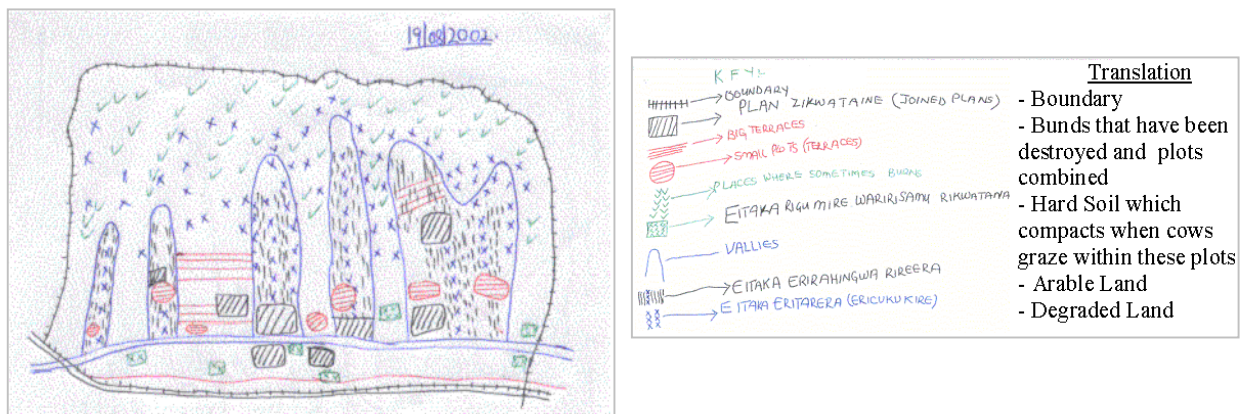 19/08/2002.
KEY:
BOUNDARY
PLAN ZIKWATAINE (JOINED PLANS)
BIG TERRACES
SMALL PLOTS (TERRACES)
PLACES WHERE SOMETIMES BURNS
EITAKA RIGUMIRE WARIRISAMU RIKWATANA
VALLIES
EITAKA ERIRAHINGWA RIREERA
EITAKA ERITARERA (ERICUKUKIRE)
Translation
- Boundary
- Bunds that have been
destroyed and plots
combined
- Hard Soil which
compacts when cows
graze within these plots
- Arable Land
- Degraded Land